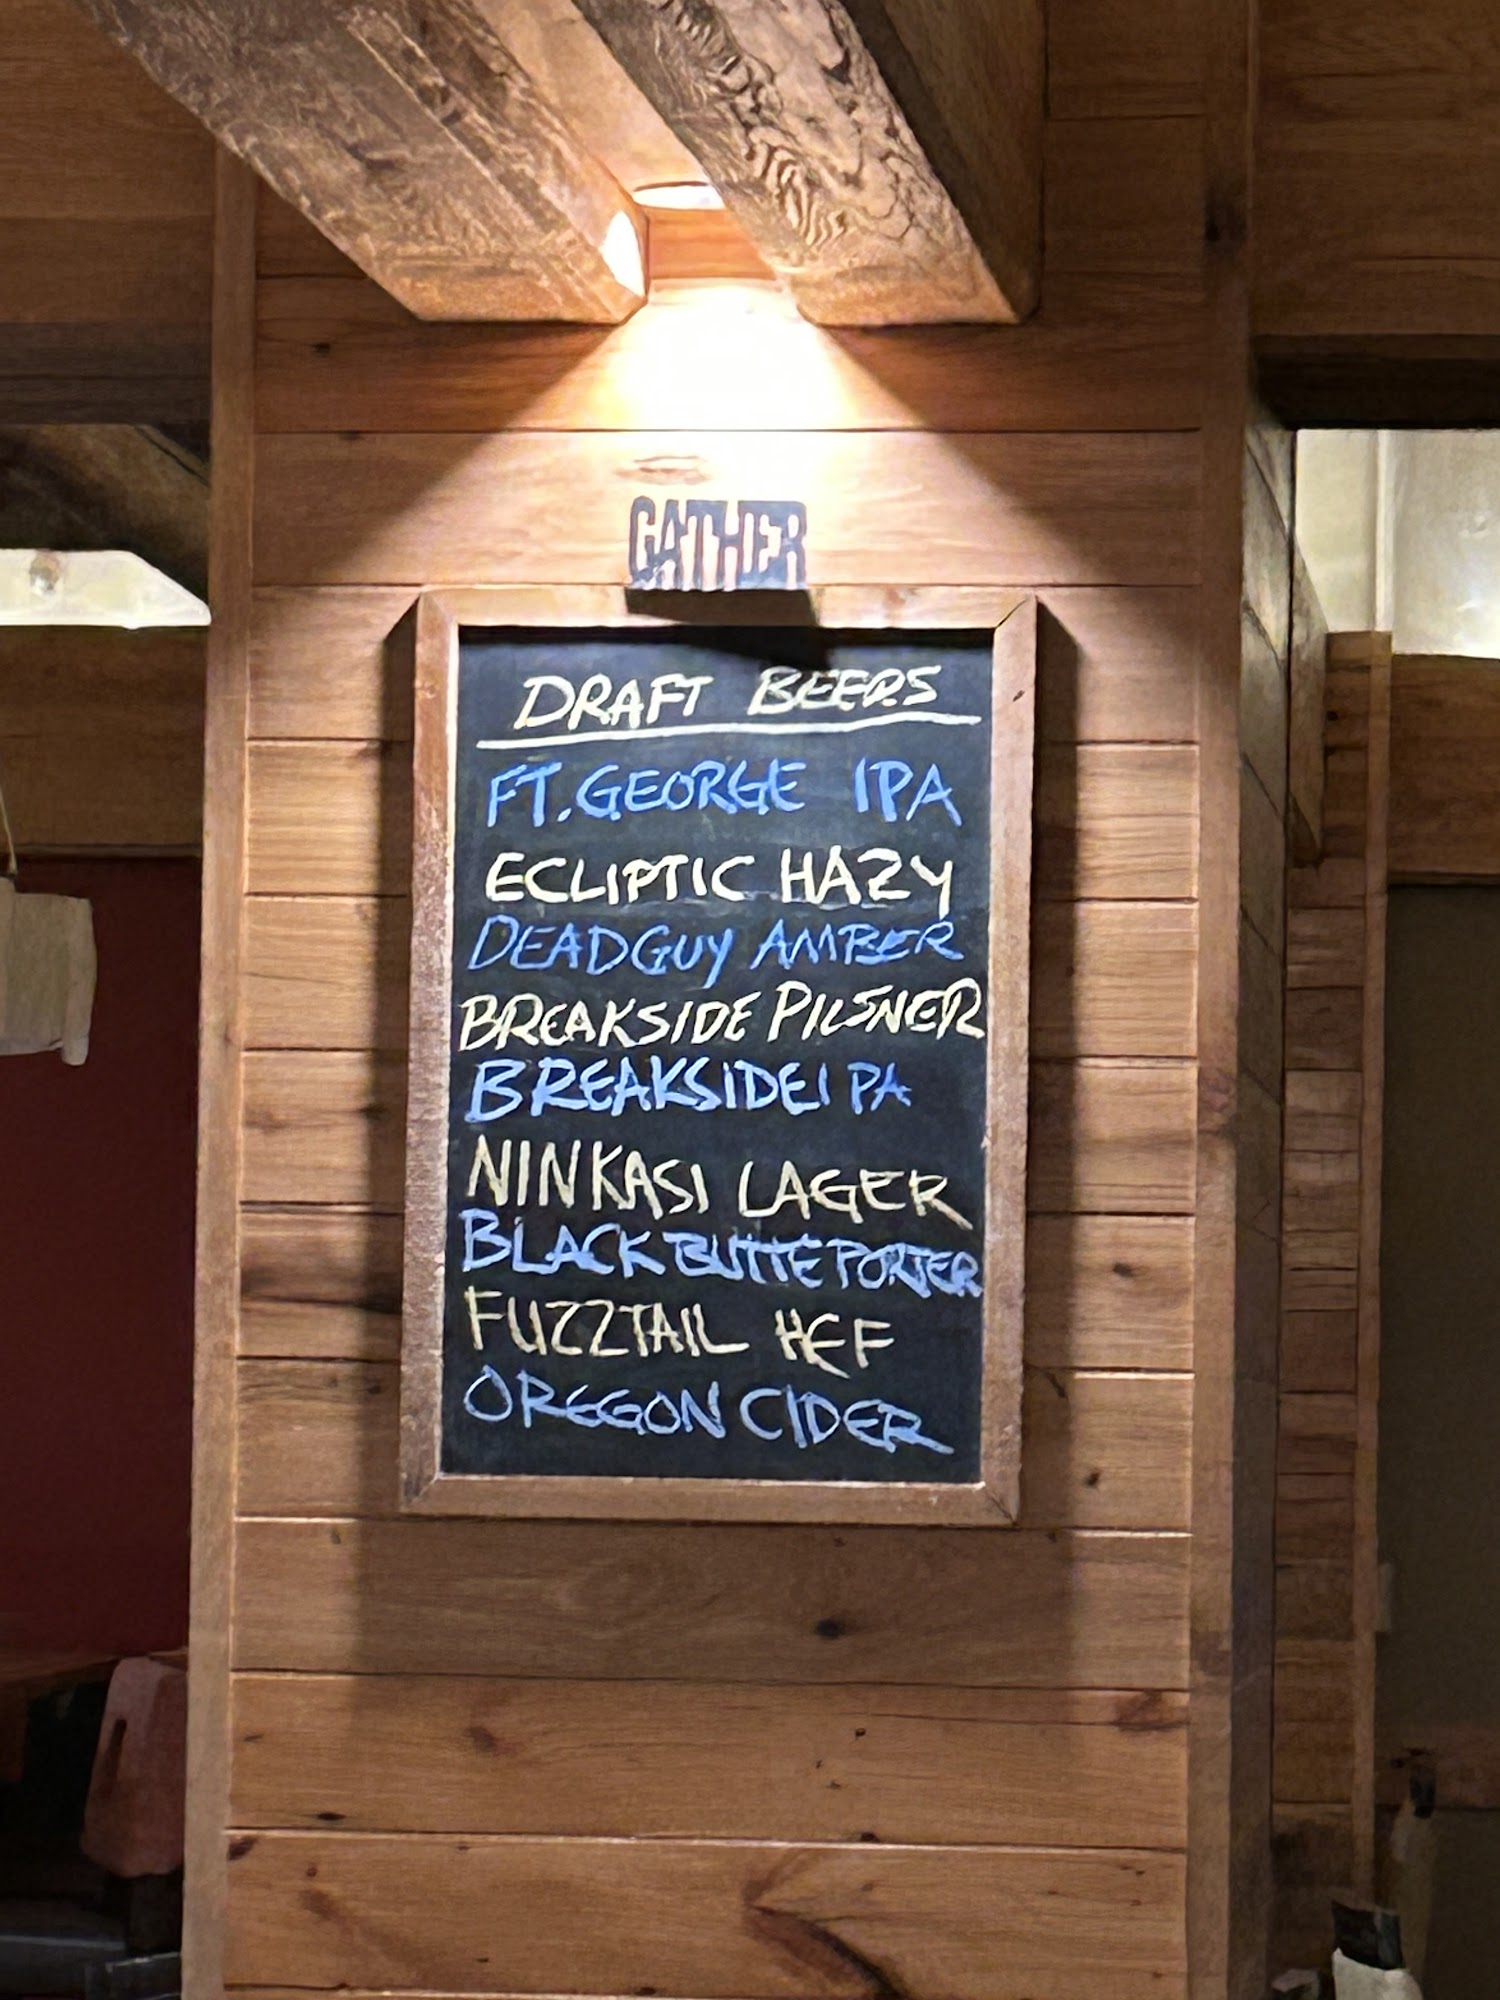 GATHER
DRAFT BEERS
FT. GEORGE IPA
ECLIPTIC HAZY
DEADGUY AMBER
BREAKSIDE PILSNER
BREAKSIDE IPA
NINKASI LAGER
BLACK BUTTE PORTER
FUZZTAIL HEF
OREGON CIDER